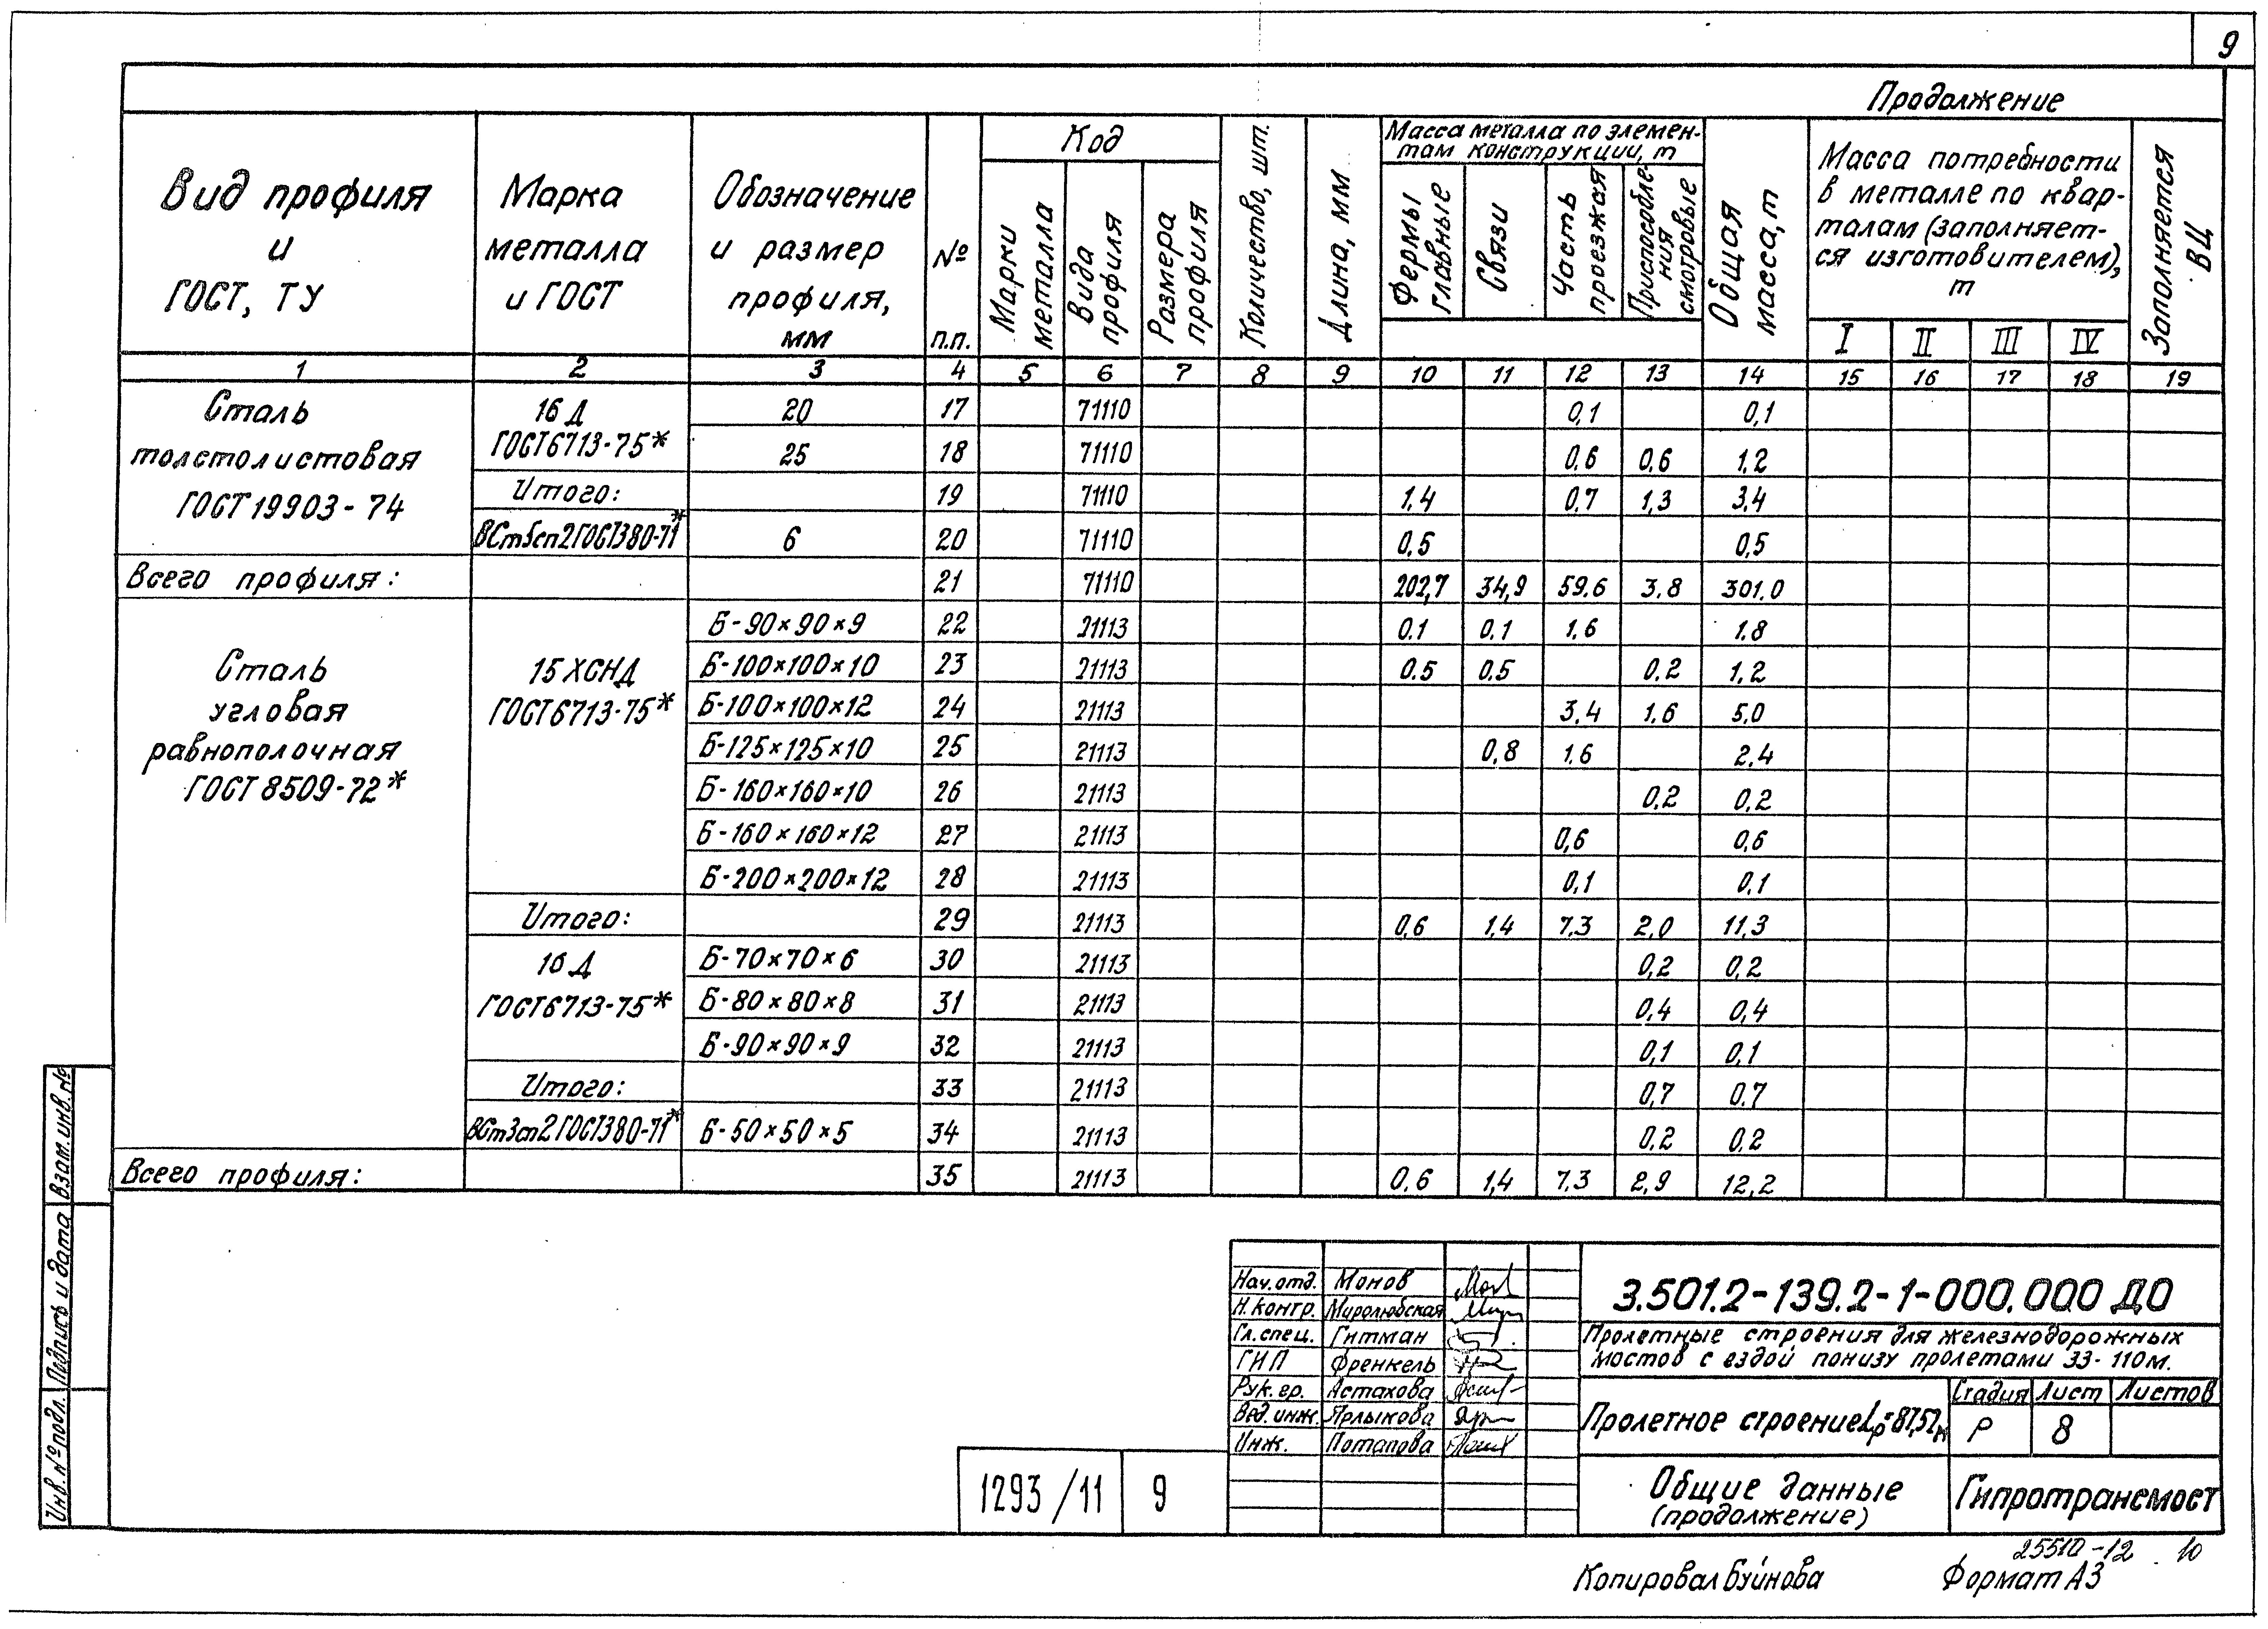 9
Продолжение
Вид профиля и ГОСТ, ТУ
Марка металла и ГОСТ
Обозначение и размер профиля, мм
№ п.п.
Код
Марки металла
Вида профиля
Размера профиля
Количество, шт.
Длина, мм
Масса металла по элемен-
там конструкции, т
Фермы главные
Связи
Часть проезжая
Приспособле-
ния смотровые
Общая масса, т
Масса потребности
в металле по квар-
талам (заполняет-
ся изготовителем),
т
I II III IV
Заполняется ВЦ
1 2 3 4 5 6 7 8 9 10 11 12 13 14 15 16 17 18 19
Сталь
толстолистовая
ГОСТ 19903-74
16Д
ГОСТ6713-75*
20 17 71110 0,1 0,1
25 18 71110 0,6 0,6 1,2
Итого: 19 71110 1,4 0,7 1,3 3,4
ВСт3сп2ГОСТ380-71* 6 20 71110 0,5 0,5
Всего профиля: 21 71110 202,7 34,9 59.6 3.8 301.0
Сталь
угловая
равнополочная
ГОСТ 8509-72*
15ХСНД
ГОСТ6713-75*
Б-90×90×9 22 21113 0.1 0.1 1.6 1.8
Б-100×100×10 23 21113 0.5 0.5 0.2 1.2
Б-100×100×12 24 21113 3,4 1,6 5,0
Б-125×125×10 25 21113 0,8 1,6 2,4
Б-160×160×10 26 21113 0,2 0,2
Б-160×160×12 27 21113 0,6 0,6
Б-200×200×12 28 21113 0,1 0,1
Итого: 29 21113 0,6 1,4 7,3 2,0 11,3
16Д
ГОСТ6713-75*
Б-70×70×6 30 21113 0,2 0,2
Б-80×80×8 31 21113 0,4 0,4
Б-90×90×9 32 21113 0,1 0,1
Итого: 33 21113 0,7 0.7
ВСт3сп2ГОСТ380-71* Б-50×50×5 34 21113 0,2 0,2
Всего профиля: 35 21113 0.6 1,4 7.3 2,9 12,2
Взам.инв.№
Подпись и дата
Инв.№подл.
Нач.отд. Монов
Н.контр. Миролюбская
Гл.спец. Гитман
ГИП Френкель
Рук.гр. Астахова
Вед.инж. Ярлыкова
Инж. Потапова
3.501.2-139.2-1-000.000 ДО
Пролетные строения для железнодорожных
мостов с ездой понизу пролетами 33-110м.
Пролетное строение Lр=87,52м
Стадия Лист Листов
Р 8
Общие данные
(продолжение)
Гипротрансмост
1293/11 9
25510-12 10
Копировал Буйнова Формат А3